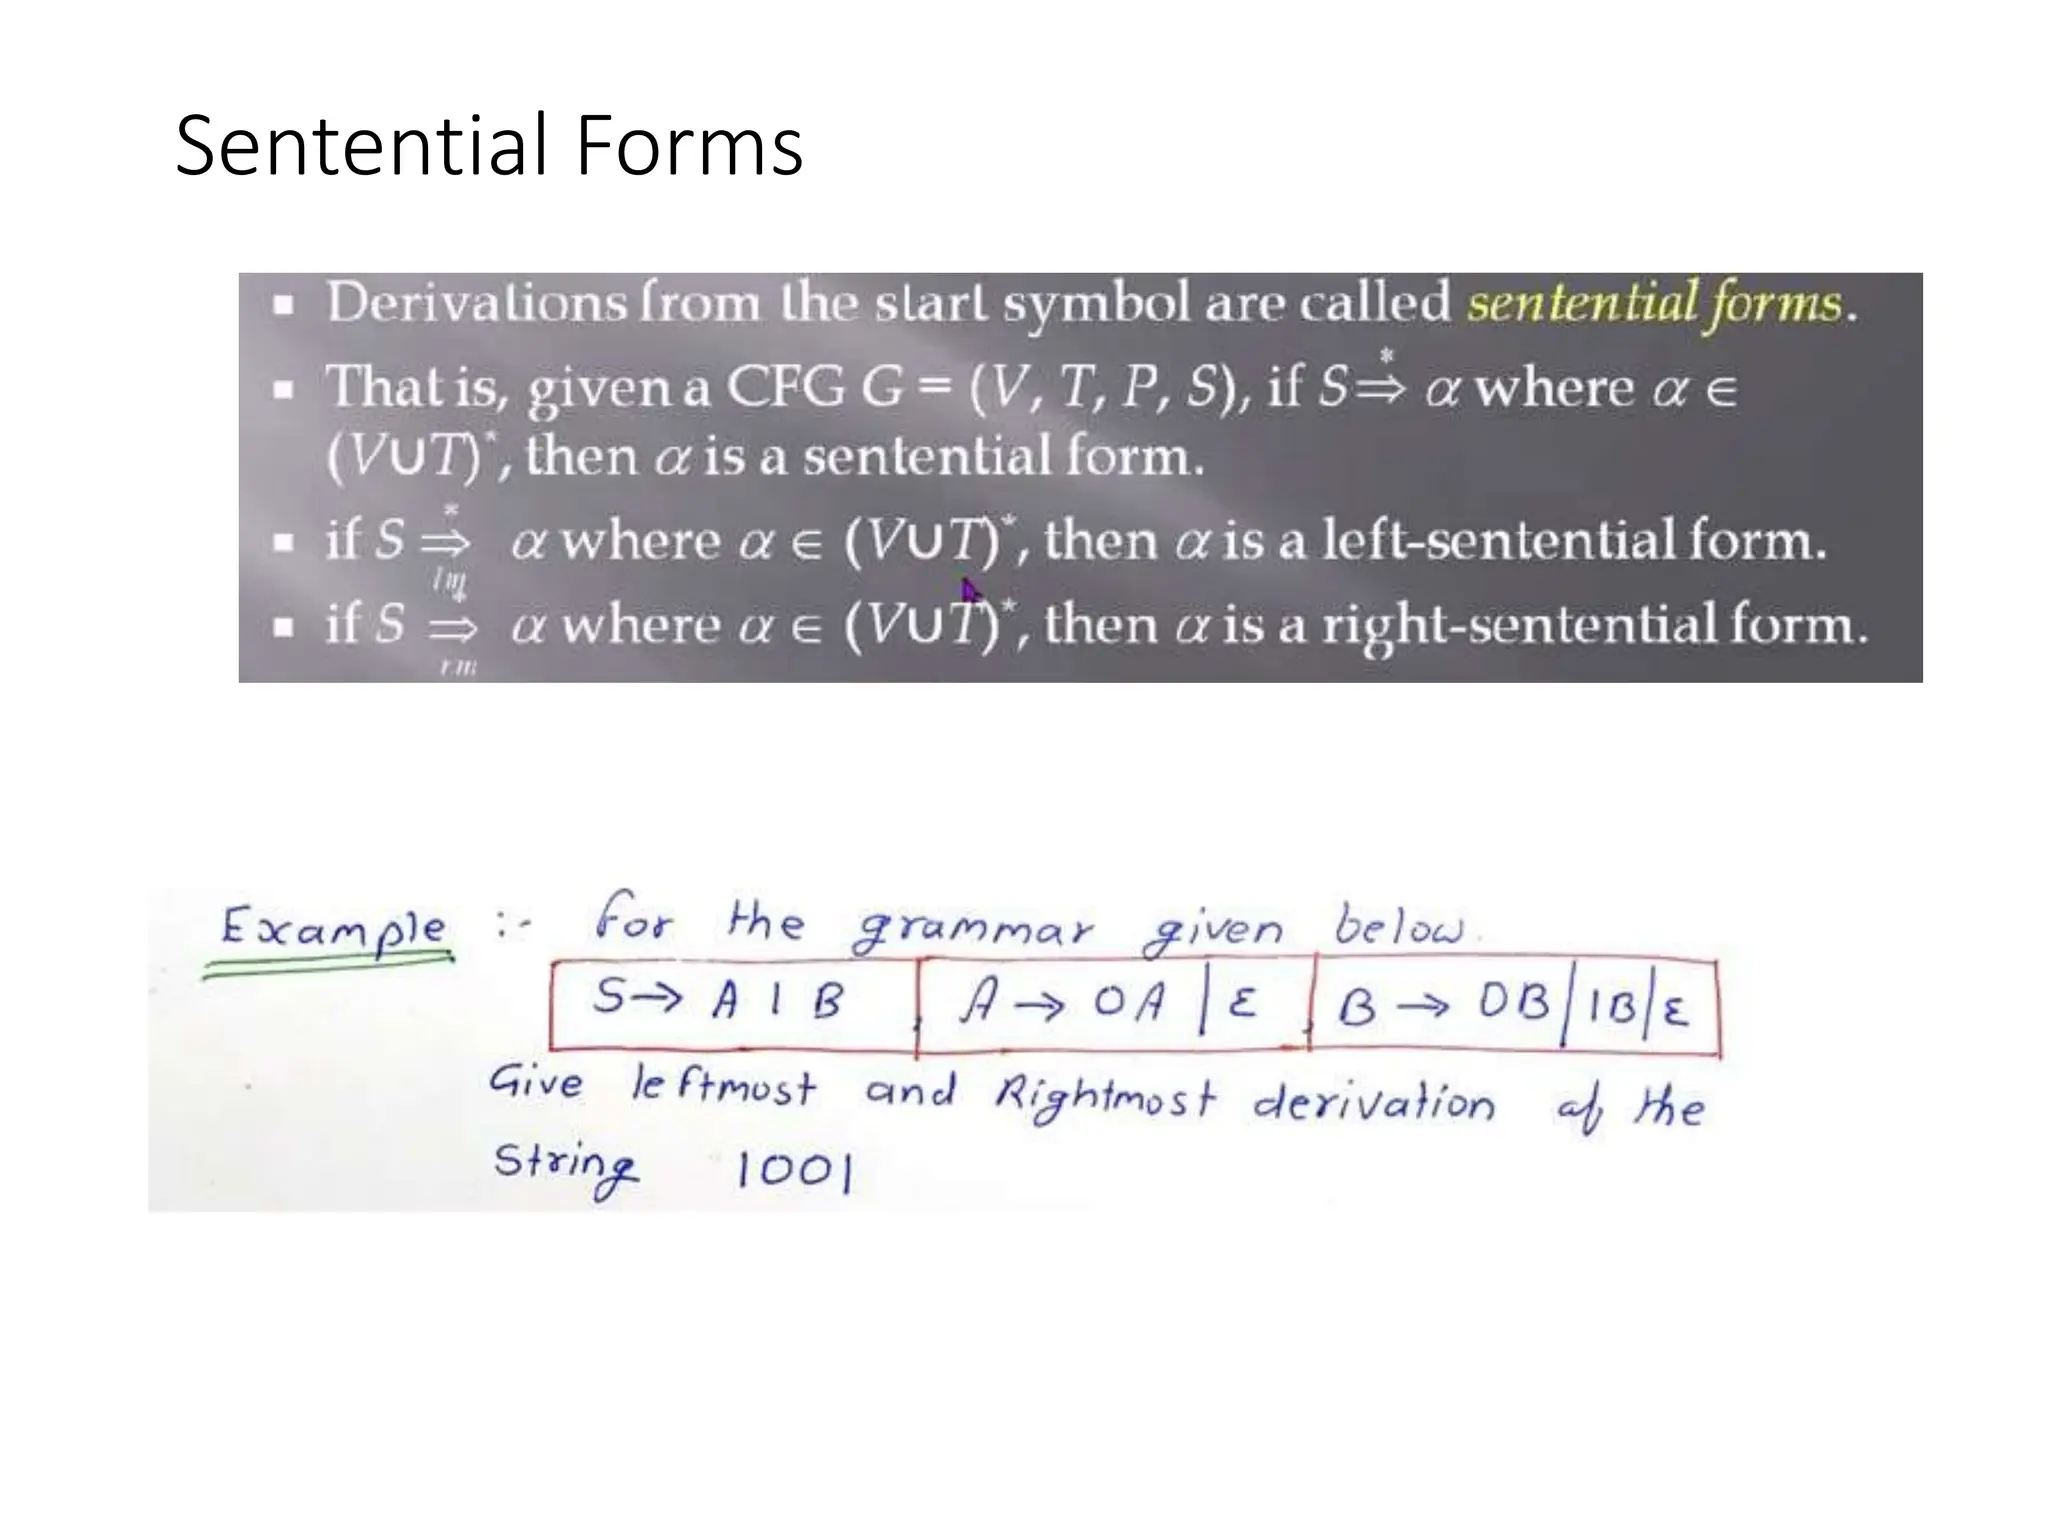 Sentential Forms
▪ Derivations from the start symbol are called sentential forms.
▪ That is, given a CFG G = (V, T, P, S), if S ⇒* α where α ∈
(V∪T)*, then α is a sentential form.
▪ if S ⇒* α where α ∈ (V∪T)*, then α is a left-sentential form.
lm
▪ if S ⇒* α where α ∈ (V∪T)*, then α is a right-sentential form.
rm
Example :- For the grammar given below.
S → A 1 B , A → 0A | ε , B → 0B | 1B | ε
Give leftmost and Rightmost derivation of the
String 1001